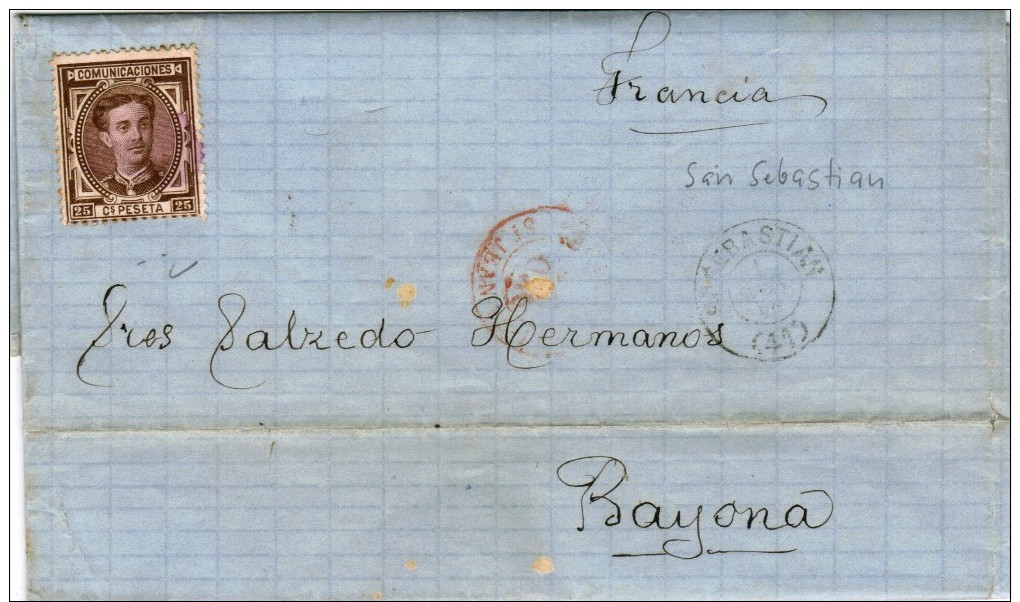 COMUNICACIONES
25 Cs PESETA 25
Francia
San Sebastian
ST JEAN
SEBASTIAN
(41)
Sres Salzedo Hermanos
Bayona